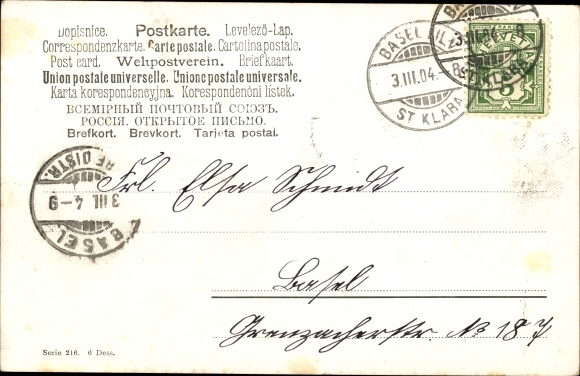 Dopisnice. Postkarte. Levelező-Lap.
Correspondenzkarte. Carte postale. Cartolina postale.
Post card. Weltpostverein. Briefkaart.
Union postale universelle. Unione postale universale.
Karta korespondencyjna. Korespondenóni lístek.
ВСЕМІРНЫЙ ПОЧТОВЫЙ СОЮЗЪ.
РОССІЯ. ОТКРЫТОЕ ПИСЬМО.
Brefkort. Brevkort. Tarjeta postal.
BASEL
3.III.04.-8
ST KLARA
HELVETIA
5
BASEL
3.III.
ST KLARA
BASEL
3 III. 4-9
BRE DISTR.
Frl. Elsa Schmidt
Basel
Grenzacherstr. No 187
Serie 216. 6 Dess.